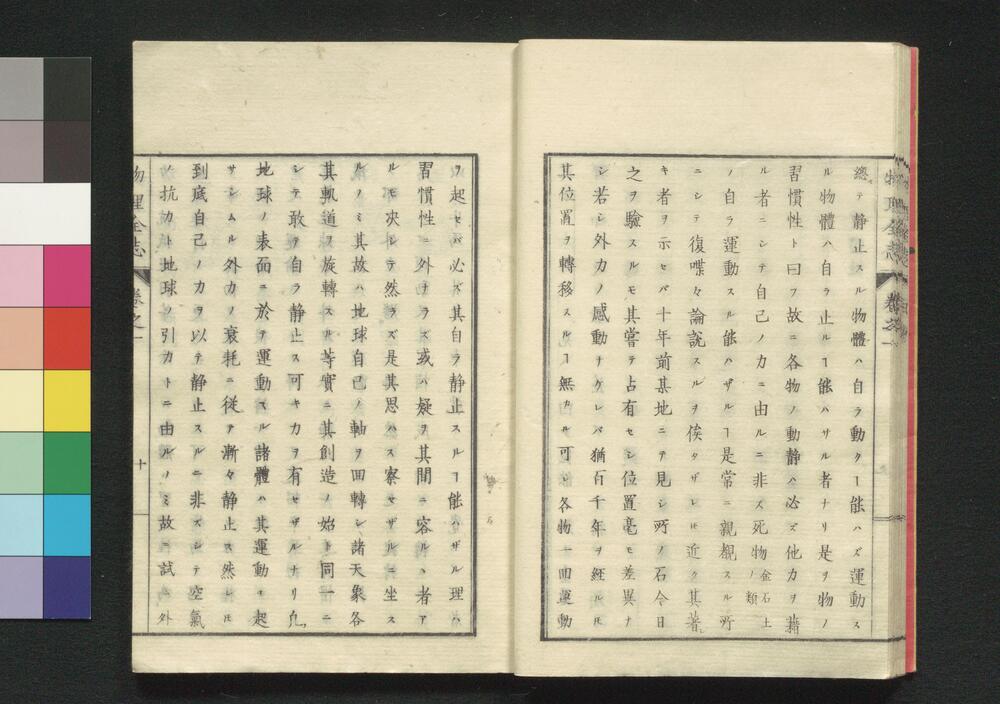 總テ静止スル物體ハ自ラ動クヿ能ハズ運動ス
ル物體ハ自ラ止ルヿ能ハサル者ナリ是ヲ物ノ
習慣性ト曰フ故ニ各物ノ動静ハ必ズ他力ヲ藉
ル者ニシテ自己ノ力ニ由ルニ非ス死物金石土ノ類
ノ自ラ運動スル能ハザルヿ是常ニ親覩スル所
ニシテ復喋々論説スルヲ俟タザレ𪜈近ク其著
キ者ヲ示セバ十年前某地ニテ見シ所ノ石今日
之ヲ驗スルモ其嘗テ占有セシ位置毫モ差異ナ
シ若シ外力ノ感動ナケレバ猶百千年ヲ経ル𪜈
其位置ヲ轉移スルヿ無カル可シ各物一回運動
ヲ起セバ必ズ其自ラ静止スルヿ能ハザル理ハ
習慣性ニ外ナラズ或ハ疑ヲ其間ニ容ルヽ者ア
ルモ决シテ然ラズ是其思ハス察セザルニ坐ス
ルノミ其故ハ地球自己ノ軸ヲ回轉シ諸天象各
其軌道ヲ旋轉スル等實ニ其創造ノ始ト同一ニ
シテ敢テ自ラ静止ス可キ力ヲ有セザルナリ凡
地球ノ表面ニ於テ運動スル諸體ハ其運動ヲ起
サシムル外力ノ衰耗ニ従テ漸々静止ス然レ𪜈
到底自己ノ力ヲ以テ静止スルニ非ズシテ空氣
ノ抗力ト地球ノ引力トニ由ルノミ故ニ試ニ外
物理全志
卷之一
十